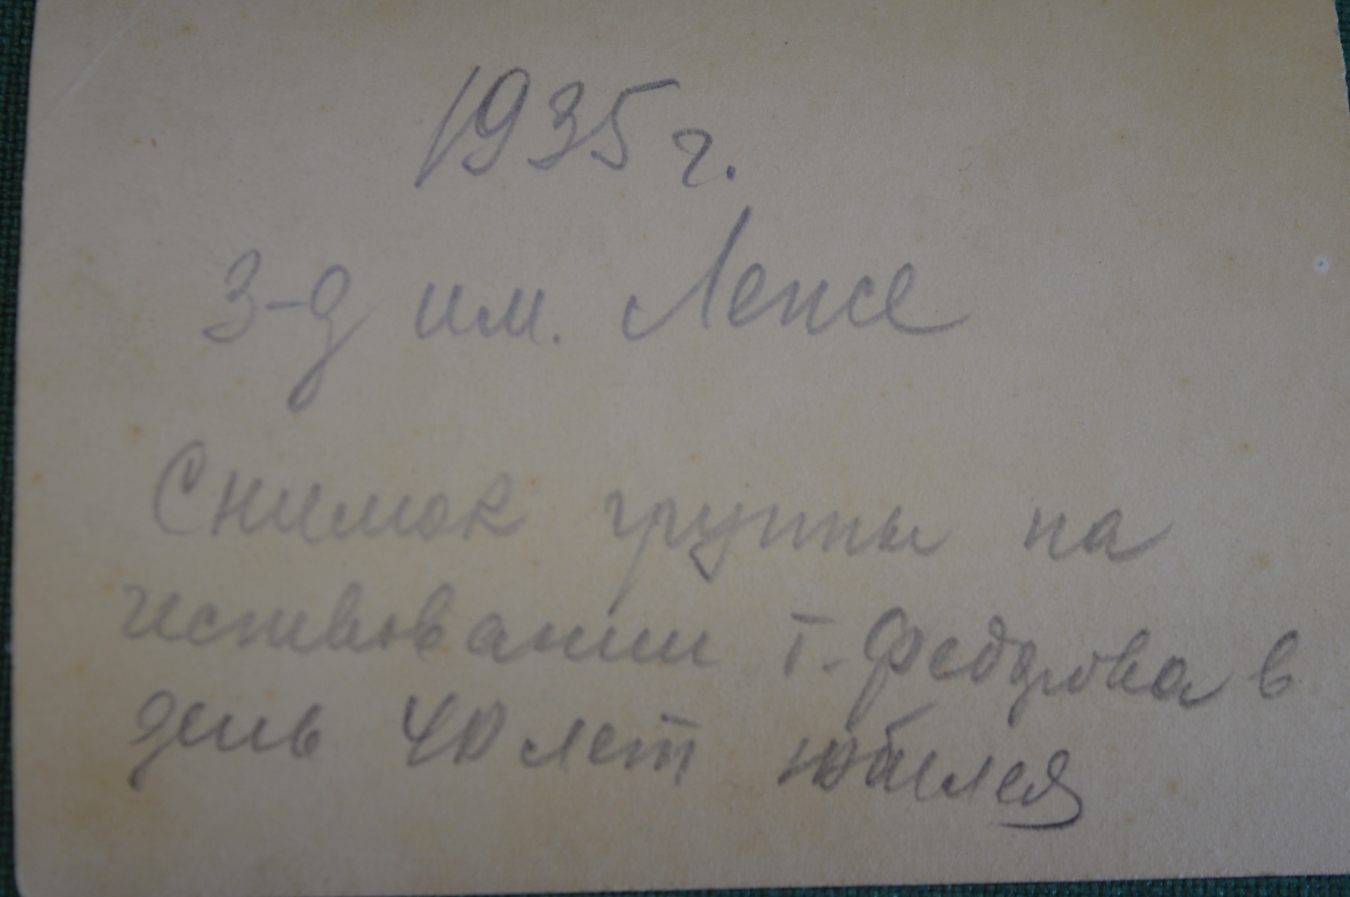 1935 г.
З-д им. Лепсе
Снимок группы на
чествовании т. Федорова в
день 40 лет юбилея